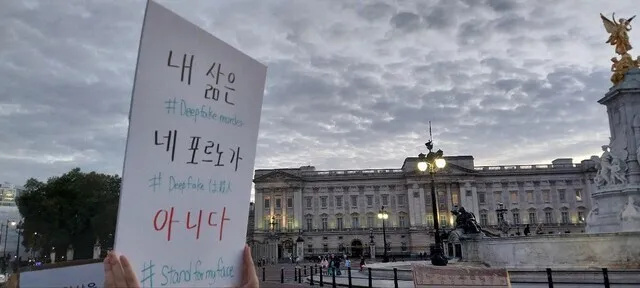 내 삶은
#Deepfake murder
네 포르노가
#Deepfake は殺人
아니다
#Stand for my face